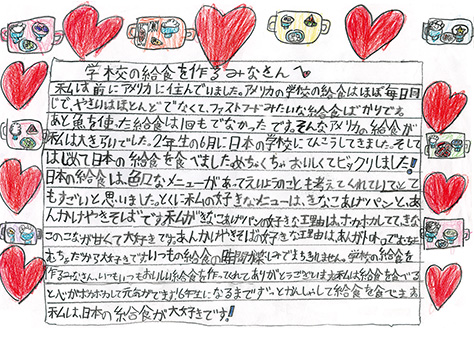 学校の給食を作るみなさんへ
私は前にアメリカに住んでいました。アメリカの学校の給食はほぼ毎日同
じで、やさいはほとんどでなくて、ファストフードみたいな給食ばかりでした。
あと魚を使った給食は1回もでなかったです。そんなアメリカの給食が
私は大きらいでした。2年生の6月に日本の学校にひっこしてきました。そして
はじめて日本の給食を食べましためちゃくちゃおいしくてビックリしました!
日本の給食は、色々なメニューがあってえいようことも考えてくれていてとて
もすごいと思いました。とくに私の好きなメニューは、きなこあげパンと、あ
んかけやきそばです私がきなこあげパンが好きな理由は、サクサクしてて、きな
このこなが甘くて大好きです。あんかけやきそばが好きな理由は、あんが
だから大好きですいつも給食の時間が楽しみでまちきれません。学校の給食を
作るみなさん、いつもいつもおいしい給食を作ってくれてありがとうございます私は給食を食べる
と心がポカポカして元気がでます6年生になるまでずっとかんしゃして給食を食べます
私は、日本の給食が大好きです!